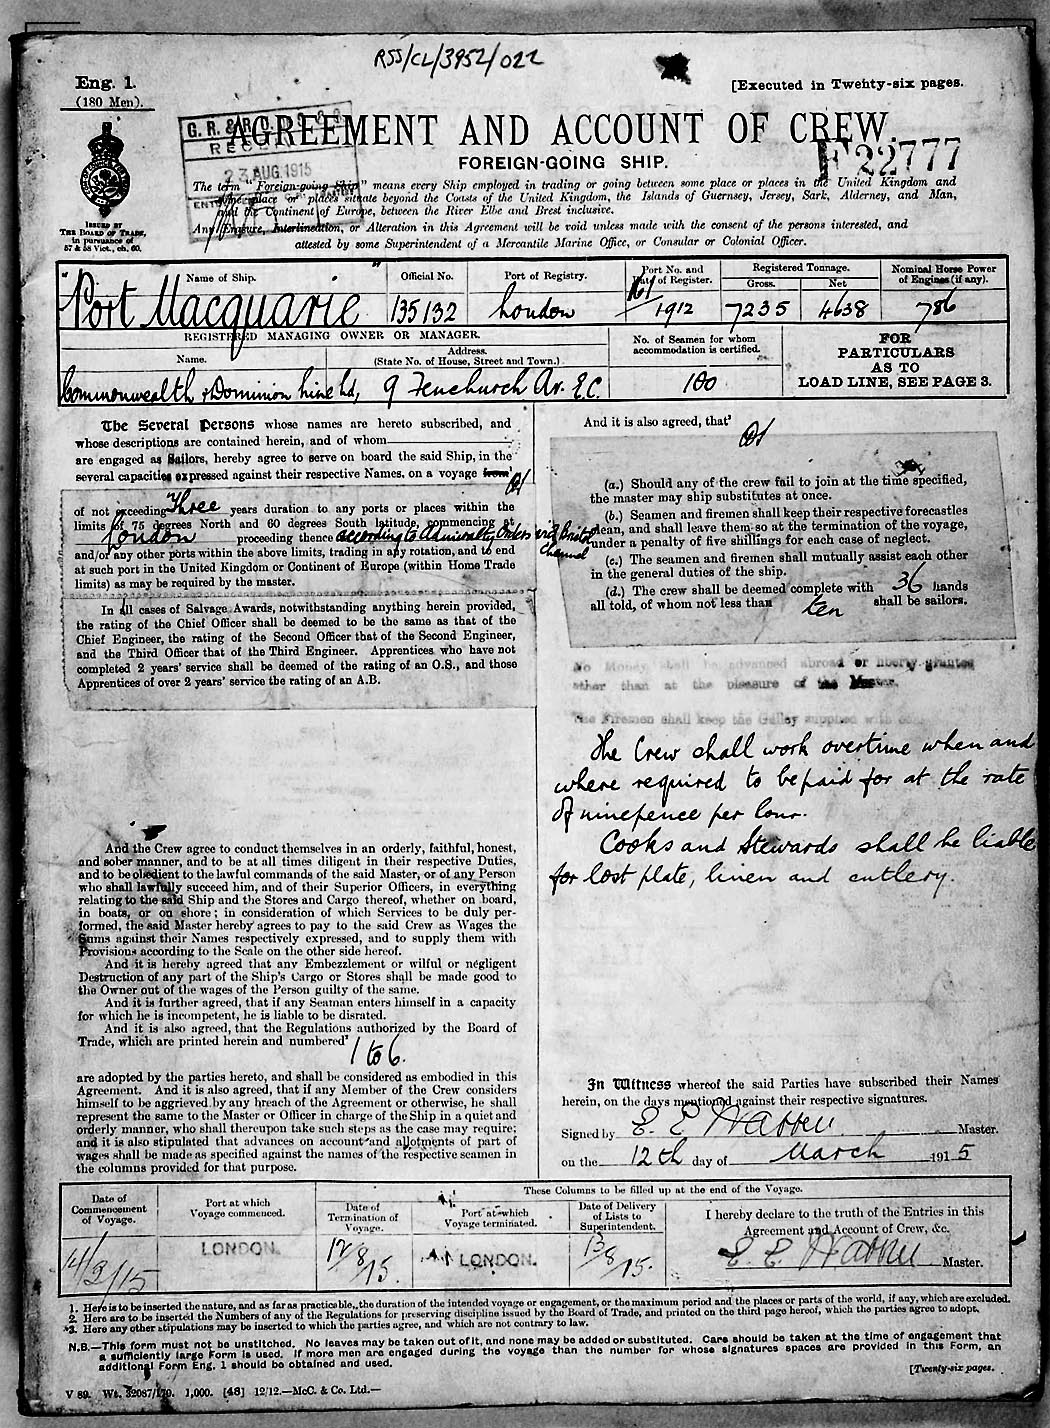 RSS/CL/3952/022
Eng. 1.
(180 Men).
[Executed in Twenty-six pages.
AGREEMENT AND ACCOUNT OF CREW.
FOREIGN-GOING SHIP.
G. R. &
23 AUG. 1915
F22777
ISSUED BY
THE BOARD OF TRADE,
in pursuance of
57 & 58 Vict., ch. 60.
The term "Foreign-going Ship" means every Ship employed in trading or going between some place or places in the United Kingdom and
some place or places situate beyond the Coasts of the United Kingdom, the Islands of Guernsey, Jersey, Sark, Alderney, and Man,
and the Continent of Europe, between the River Elbe and Brest inclusive.
Any Erasure, Interlineation, or Alteration in this Agreement will be void unless made with the consent of the persons interested, and
attested by some Superintendent of a Mercantile Marine Office, or Consular or Colonial Officer.
Name of Ship.
Official No.
Port of Registry.
Port No. and
Date of Register.
Registered Tonnage.
Gross.
Net
Nominal Horse Power
of Engines (if any).
"Port Macquarie"
135132
London
161/1912
7235
4638
786
REGISTERED MANAGING OWNER OR MANAGER.
Name.
Address.
(State No. of House, Street and Town.)
No. of Seamen for whom
accommodation is certified.
FOR
PARTICULARS
AS TO
LOAD LINE, SEE PAGE 3.
Commonwealth & Dominion Line Ld,
9 Fenchurch Av. E.C.
100
The Several Persons whose names are hereto subscribed, and
whose descriptions are contained herein, and of whom
are engaged as Sailors, hereby agree to serve on board the said Ship, in the
several capacities expressed against their respective Names, on a voyage from¹
of not exceeding Three years duration to any ports or places within the
limits of 75 degrees North and 60 degrees South latitude, commencing at
London proceeding thence according to Admiralty Orders via Bristol
Channel
and/or any other ports within the above limits, trading in any rotation, and to end
at such port in the United Kingdom or Continent of Europe (within Home Trade
limits) as may be required by the master.
In all cases of Salvage Awards, notwithstanding anything herein provided,
the rating of the Chief Officer shall be deemed to be the same as that of the
Chief Engineer, the rating of the Second Officer that of the Second Engineer,
and the Third Officer that of the Third Engineer. Apprentices who have not
completed 2 years' service shall be deemed of the rating of an O.S., and those
Apprentices of over 2 years' service the rating of an A.B.
And the Crew agree to conduct themselves in an orderly, faithful, honest,
and sober manner, and to be at all times diligent in their respective Duties,
and to be obedient to the lawful commands of the said Master, or of any Person
who shall lawfully succeed him, and of their Superior Officers, in everything
relating to the said Ship and the Stores and Cargo thereof, whether on board,
in boats, or on shore; in consideration of which Services to be duly per-
formed, the said Master hereby agrees to pay to the said Crew as Wages the
Sums against their Names respectively expressed, and to supply them with
Provisions according to the Scale on the other side hereof.
And it is hereby agreed that any Embezzlement or wilful or negligent
Destruction of any part of the Ship's Cargo or Stores shall be made good to
the Owner out of the wages of the Person guilty of the same.
And it is further agreed, that if any Seaman enters himself in a capacity
for which he is incompetent, he is liable to be disrated.
And it is also agreed, that the Regulations authorized by the Board of
Trade, which are printed herein and numbered²
1 to 6.
are adopted by the parties hereto, and shall be considered as embodied in this
Agreement. And it is also agreed, that if any Member of the Crew considers
himself to be aggrieved by any breach of the Agreement or otherwise, he shall
represent the same to the Master or Officer in charge of the Ship in a quiet and
orderly manner, who shall thereupon take such steps as the case may require;
and it is also stipulated that advances on account and allotments of part of
wages shall be made as specified against the names of the respective seamen in
the columns provided for that purpose.
And it is also agreed, that³
(a.) Should any of the crew fail to join at the time specified,
the master may ship substitutes at once.
(b.) Seamen and firemen shall keep their respective forecastles
clean, and shall leave them so at the termination of the voyage,
under a penalty of five shillings for each case of neglect.
(c.) The seamen and firemen shall mutually assist each other
in the general duties of the ship.
(d.) The crew shall be deemed complete with 36 hands
all told, of whom not less than ten shall be sailors.
No Money shall be advanced abroad or liberty granted
other than at the pleasure of the Master.
The Firemen shall keep the Galley supplied with
The Crew shall work overtime when and
where required to be paid for at the rate
of ninepence per hour.
Cooks and Stewards shall be liable
for lost plate, linen and cutlery.
In Witness whereof the said Parties have subscribed their Names
herein, on the days mentioned against their respective signatures.
Signed by E. E. Warren Master.
on the 12th day of March 1915
Date of
Commencement
of Voyage.
Port at which
Voyage commenced.
These Columns to be filled up at the end of the Voyage.
Date of
Termination of
Voyage.
Port at which
Voyage terminated.
Date of Delivery
of Lists to
Superintendent.
I hereby declare to the truth of the Entries in this
Agreement and Account of Crew, &c.
14/3/15
LONDON.
12/8/15.
LONDON.
13/8/15.
E. E. Warren Master.
1. Here is to be inserted the nature, and as far as practicable, the duration of the intended voyage or engagement, or the maximum period and the places or parts of the world, if any, which are excluded.
2. Here are to be inserted the Numbers of any of the Regulations for preserving discipline issued by the Board of Trade, and printed on the third page hereof, which the parties agree to adopt.
3. Here any other stipulations may be inserted to which the parties agree, and which are not contrary to law.
N.B.—This form must not be unstitched. No leaves may be taken out of it, and none may be added or substituted. Care should be taken at the time of engagement that
a sufficiently large Form is used. If more men are engaged during the voyage than the number for whose signatures spaces are provided in this Form, an
additional Form Eng. 1 should be obtained and used.
[Twenty-six pages.
V 89. Wt. 32087/170. 1,000. [48] 12/12.—McC. & Co. Ltd.—